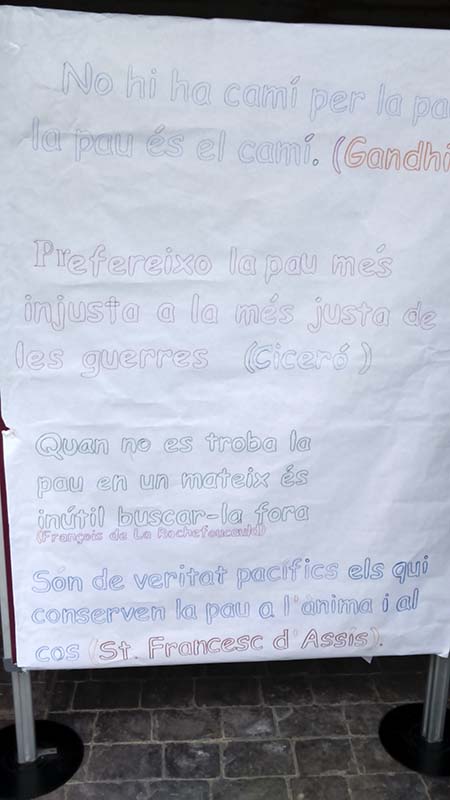 No hi ha camí per la pa
la pau és el camí. (Gandhi
Prefereixo la pau més
injusta a la més justa de
les guerres (Ciceró)
Quan no es troba la
pau en un mateix és
inútil buscar-la fora
(François de La Rochefoucauld)
Són de veritat pacífics els qui
conserven la pau a l'ànima i al
cos (St. Francesc d'Assís).